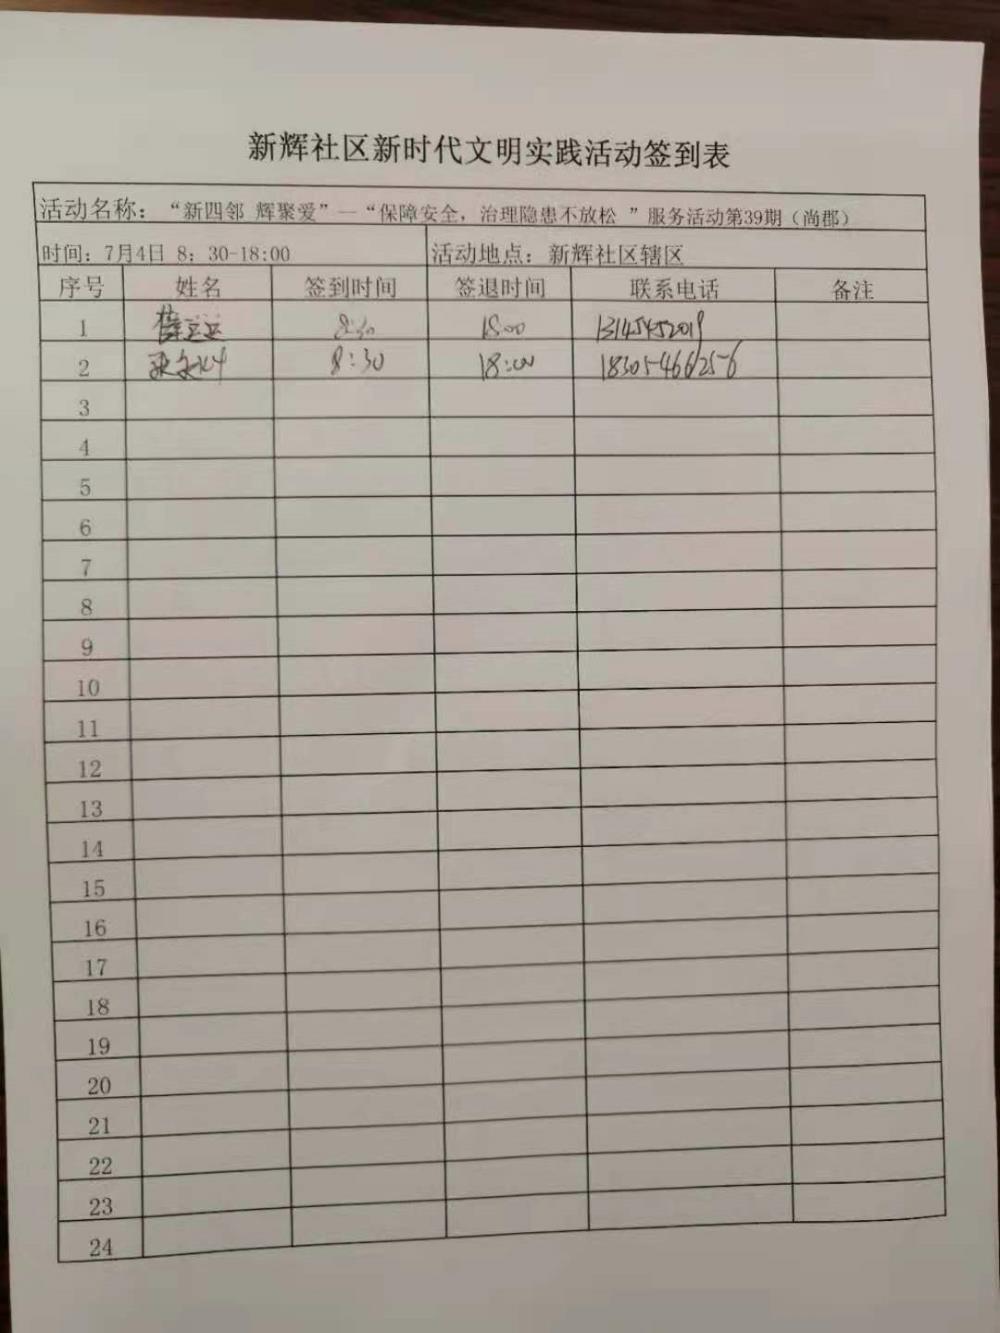 新辉社区新时代文明实践活动签到表
活动名称：“新四邻 辉聚爱”—“保障安全，治理隐患不放松 ”服务活动第39期（尚郡）
时间：7月4日 8：30-18:00 活动地点：新辉社区辖区
序号 姓名 签到时间 签退时间 联系电话 备注
1 8:30 18:00 13145452019
2 8:30 18:00 18305466256
3
4
5
6
7
8
9
10
11
12
13
14
15
16
17
18
19
20
21
22
23
24